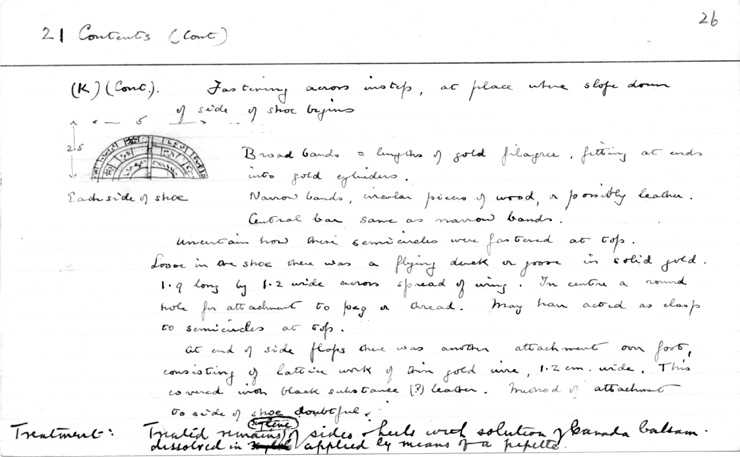 26
21 Contents (Cont)
(K) (Cont.). Fastening across instep, at place where slope down
of side of shoe begins
5
2.5
Each side of shoe
Broad bands = lengths of gold filagree, fitting at ends
into gold cylinders.
Narrow bands, circular pieces of wood, or possibly leather.
Central bar same as narrow bands.
Uncertain how these semicircles were fastened at top.
Loose in one shoe there was a flying duck or goose in solid gold.
1.9 long by 1.2 wide across spread of wing. In centre a round
hole for attachment to peg or thread. May have acted as clasp
to semicircles at top.
At end of side flaps there was another attachment over foot,
consisting of lattice work of thin gold wire, 1.2 cm. wide. This
covered with black substance (?) leather. Method of attachment
to side of shoe doubtful.
Treatment: Treated remains of sides & heels with solution of Canada balsam
xylene
dissolved in applied by means of a pipette.